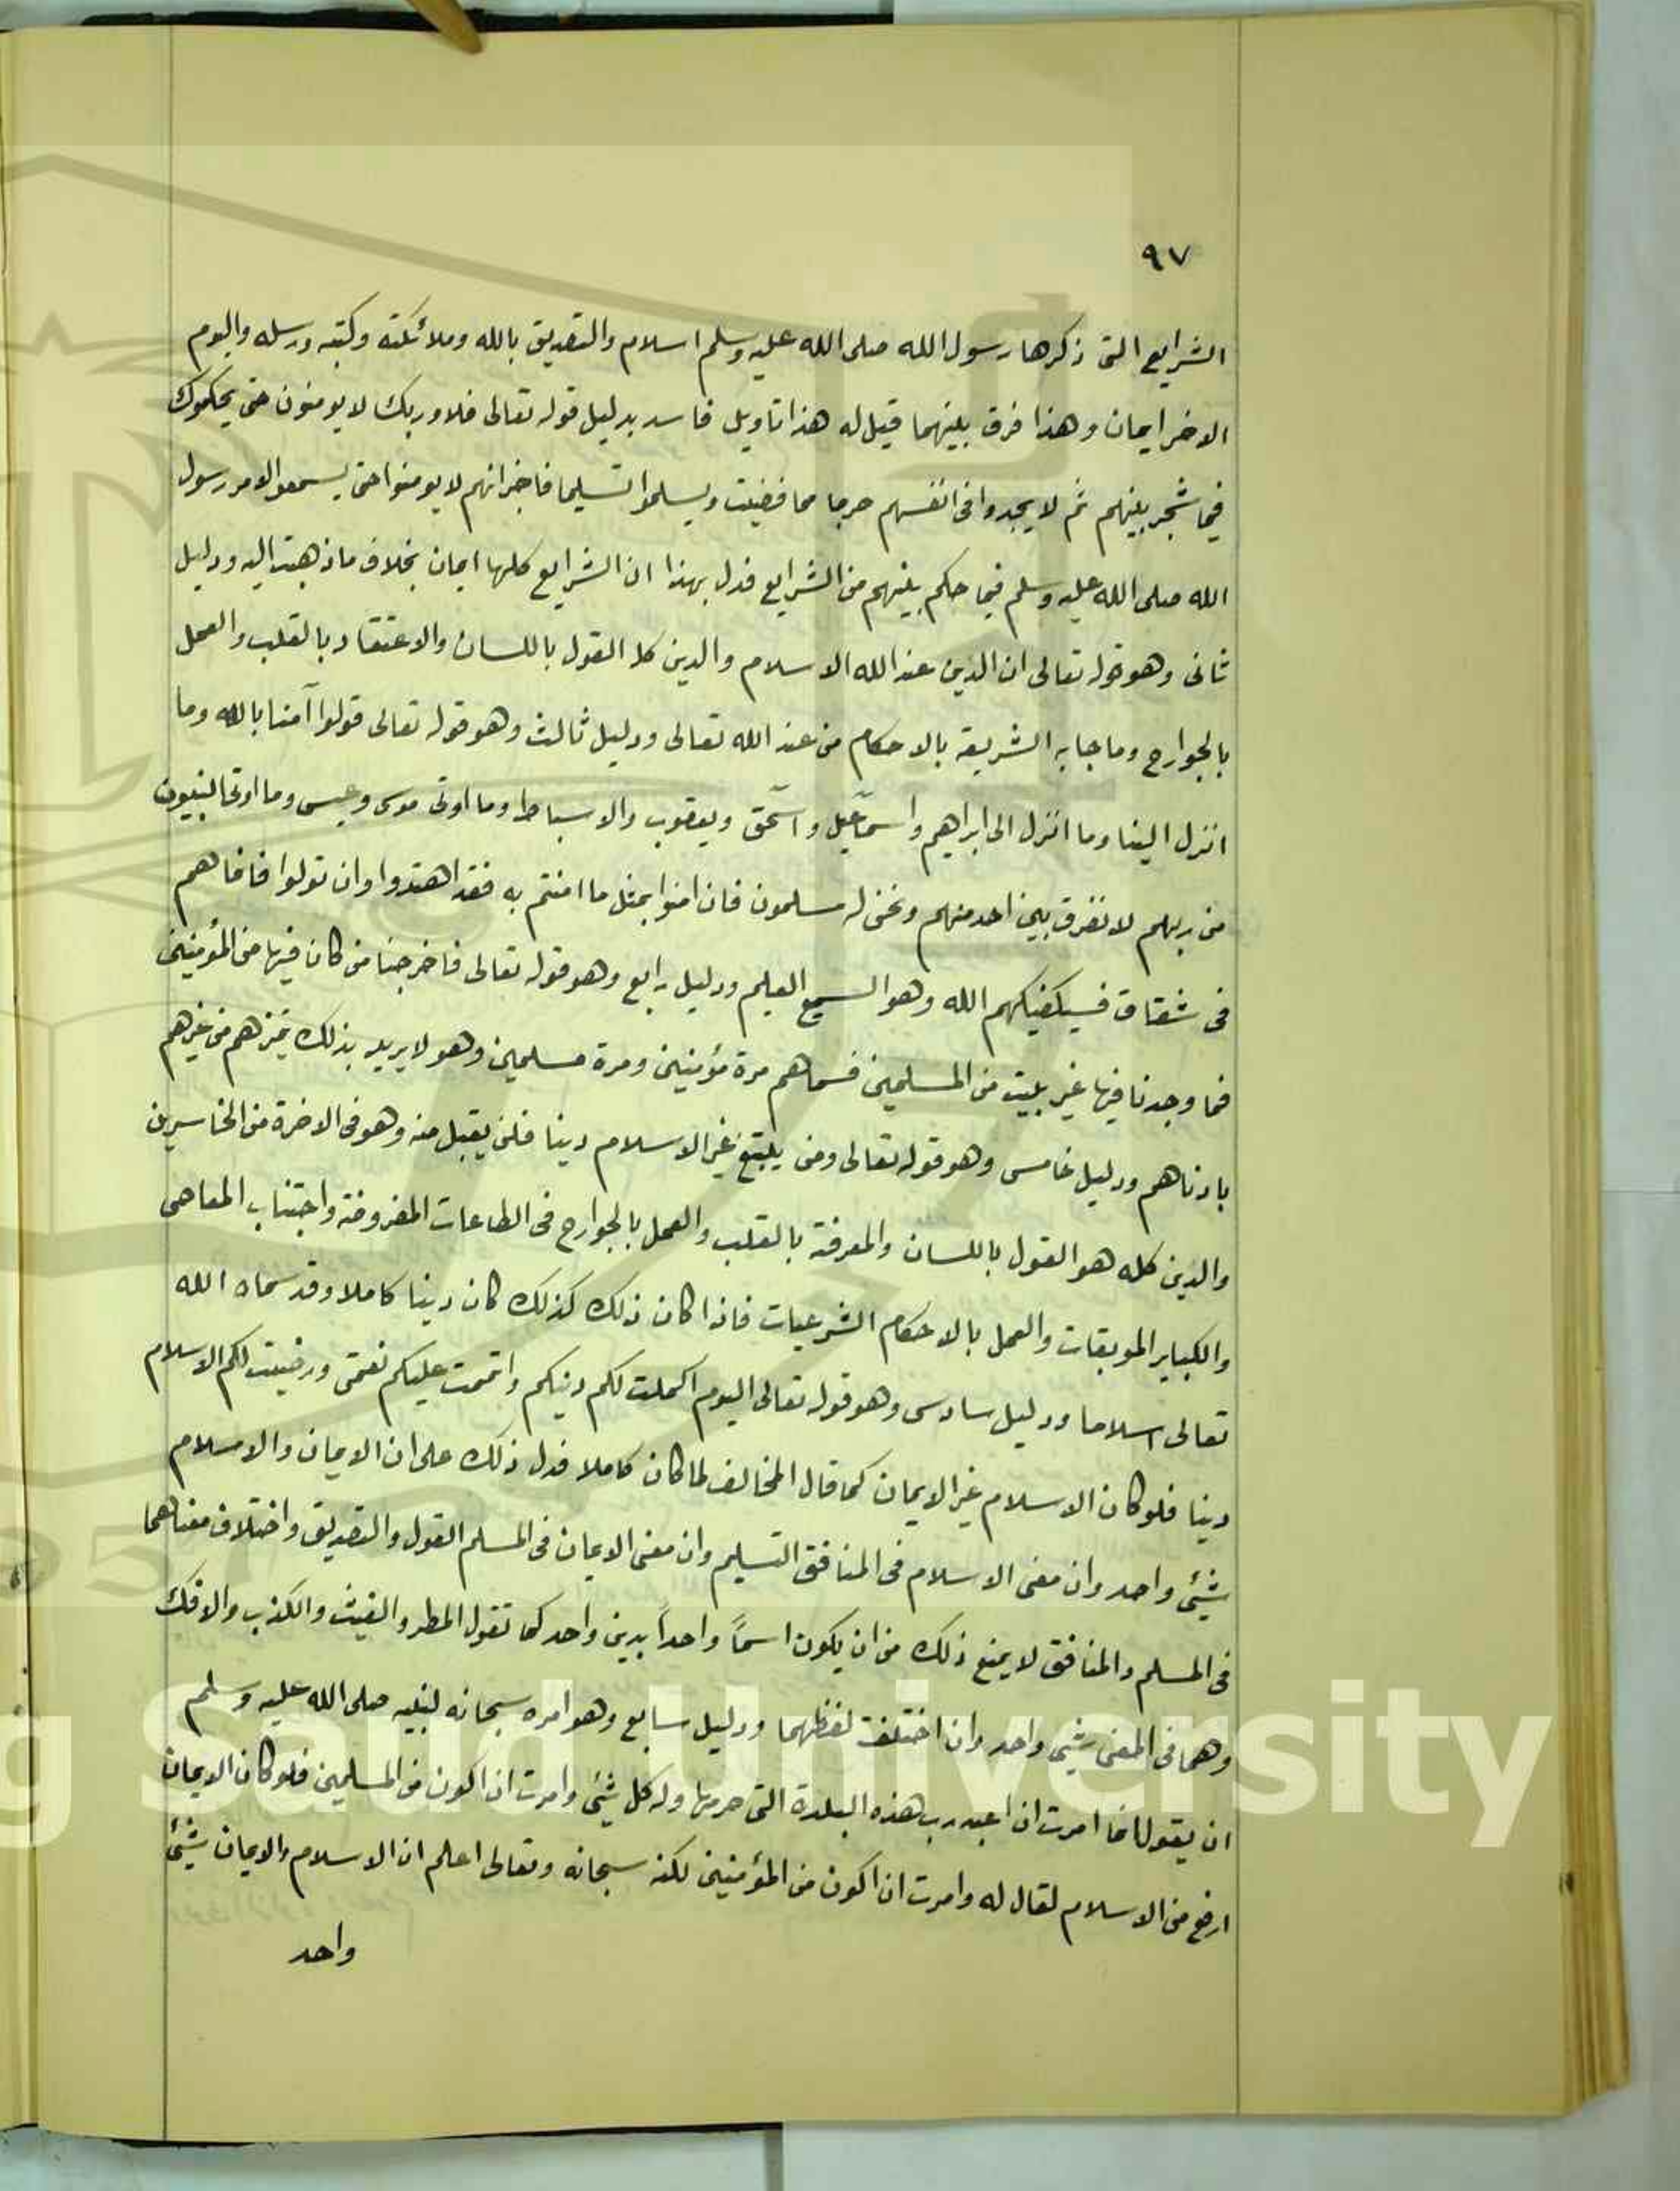 ٩٧
الشرايع التى ذكرها رسول الله صلى الله عليه وسلم اسلام والتصديق بالله وملائكته وكتبه ورسله واليوم
الاخر ايمان وهذا فرق بينهما قيل له هذا تاويل فاسد بدليل قوله تعالى فلا وربك لا يومنون حتى يحكموك
فيما شجر بينهم ثم لا يجدوا فى انفسهم حرجا مما قضيت ويسلموا تسليما فاخبر انهم لا يومنوا حتى يسمعوا لامر رسول
الله صلى الله عليه وسلم فيما حكم بينهم من الشرايع فدل بهذا ان الشرايع كلها ايمان بخلاف ما ذهبت اليه ودليل
ثانى وهو قوله تعالى ان الدين عند الله الاسلام والدين كله القول باللسان والاعتقاد بالقلب والعمل
بالجوارح وما جا به الشريعة بالاحكام من عند الله تعالى ودليل ثالث وهو قوله تعالى قولوا آمنا بالله وما
انزل الينا وما انزل الى ابراهيم واسمٰعيل واسحٰق ويعقوب والاسباط وما اوتى موسى وعيسى وما اوتى النبيون
من ربهم لا نفرق بين احد منهم ونحن له مسلمون فان امنوا بمثل ما امنتم به فقد اهتدوا وان تولوا فانما هم
فى شقاق فسيكفيكهم الله وهو السميع العليم ودليل رابع وهو قوله تعالى فاخرجنا من كان فيها من المؤمنين
فما وجدنا فيها غير بيت من المسلمين فسماهم مرة مؤمنين ومرة مسلمين وهو لا يريد بذلك تميزهم من غيرهم
باد ناهم ودليل خامس وهو قوله تعالى ومن يبتغ غير الاسلام دينا فلن يقبل منه وهو فى الاخرة من الخاسرين
والدين كله هو القول باللسان والمعرفة بالقلب والعمل بالجوارح فى الطاعات المفروضة واجتناب المعاصى
والكباير الموبقات والعمل بالاحكام الشرعيات فاذا كان ذلك كذلك كان دينا كاملا وقد سماه الله
تعالى اسلاما ودليل سادس وهو قوله تعالى اليوم اكملت لكم دينكم واتممت عليكم نعمتى ورضيت لكم الاسلام
دينا فلو كان الاسلام غير الايمان كما قال المخالف لما كان كاملا فدل ذلك على ان الايمان والاسلام
شيئ واحد وان معنى الاسلام فى المنافق التسليم وان معنى الايمان فى المسلم القول والتصديق واختلاف معناهما
فى المسلم والمنافق لا يمنع ذلك من ان يكون اسمًا واحداً بدين واحد كما تقول المطر والغيث والكذب والافك
وهما فى المعنى شيئ واحد وان اختلفت لفظهما ودليل سابع وهو امره سبحانه لنبيه صلى الله عليه وسلم
ان يقول انما امرت ان اعبد رب هذه البلدة التى حرمها وله كل شيئ وامرت ان اكون من المسلمين فلو كان الايمان
ارفع من الاسلام لقال له وامرت ان اكون من المؤمنين لكنه سبحانه وتعالى اعلم ان الاسلام والايمان شيئ
واحد
g Saud University